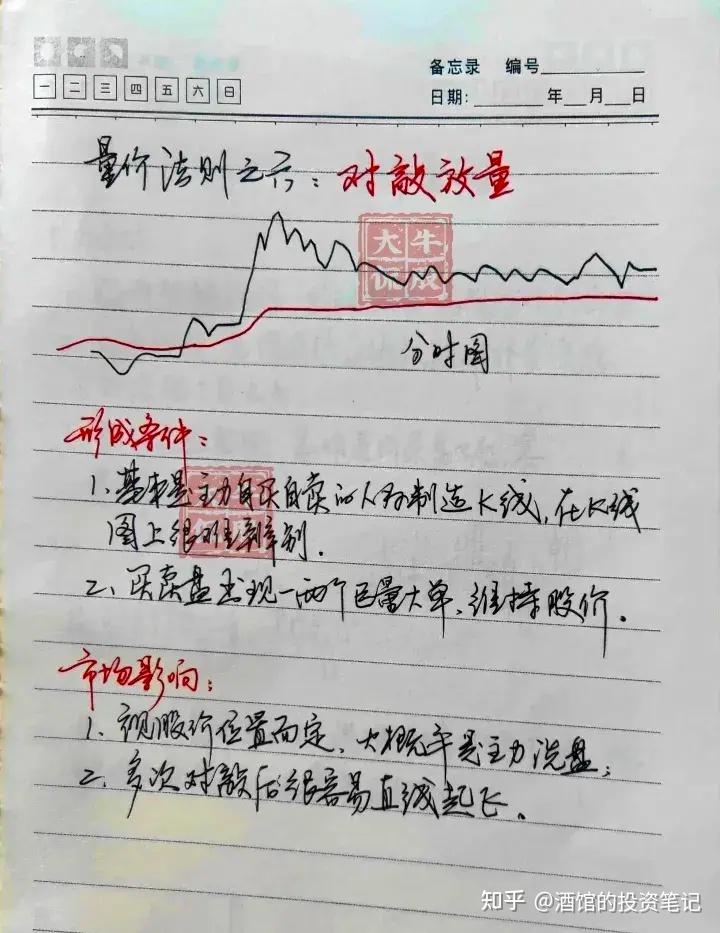 备忘录 编号
一 二 三 四 五 六 日
日期: 年 月 日
量价法则之六：对敲放量
大牛
课成
分时图
形成条件：
1、基本是主力自买自卖的人为制造K线，在K线
图上很难辨别．
2、买卖盘出现一两个巨量大单、维持股价．
市场影响：
1、视股价位置而定、大概率是主力洗盘；
2、多次对敲后很容易直线起飞．
知乎 @酒馆的投资笔记